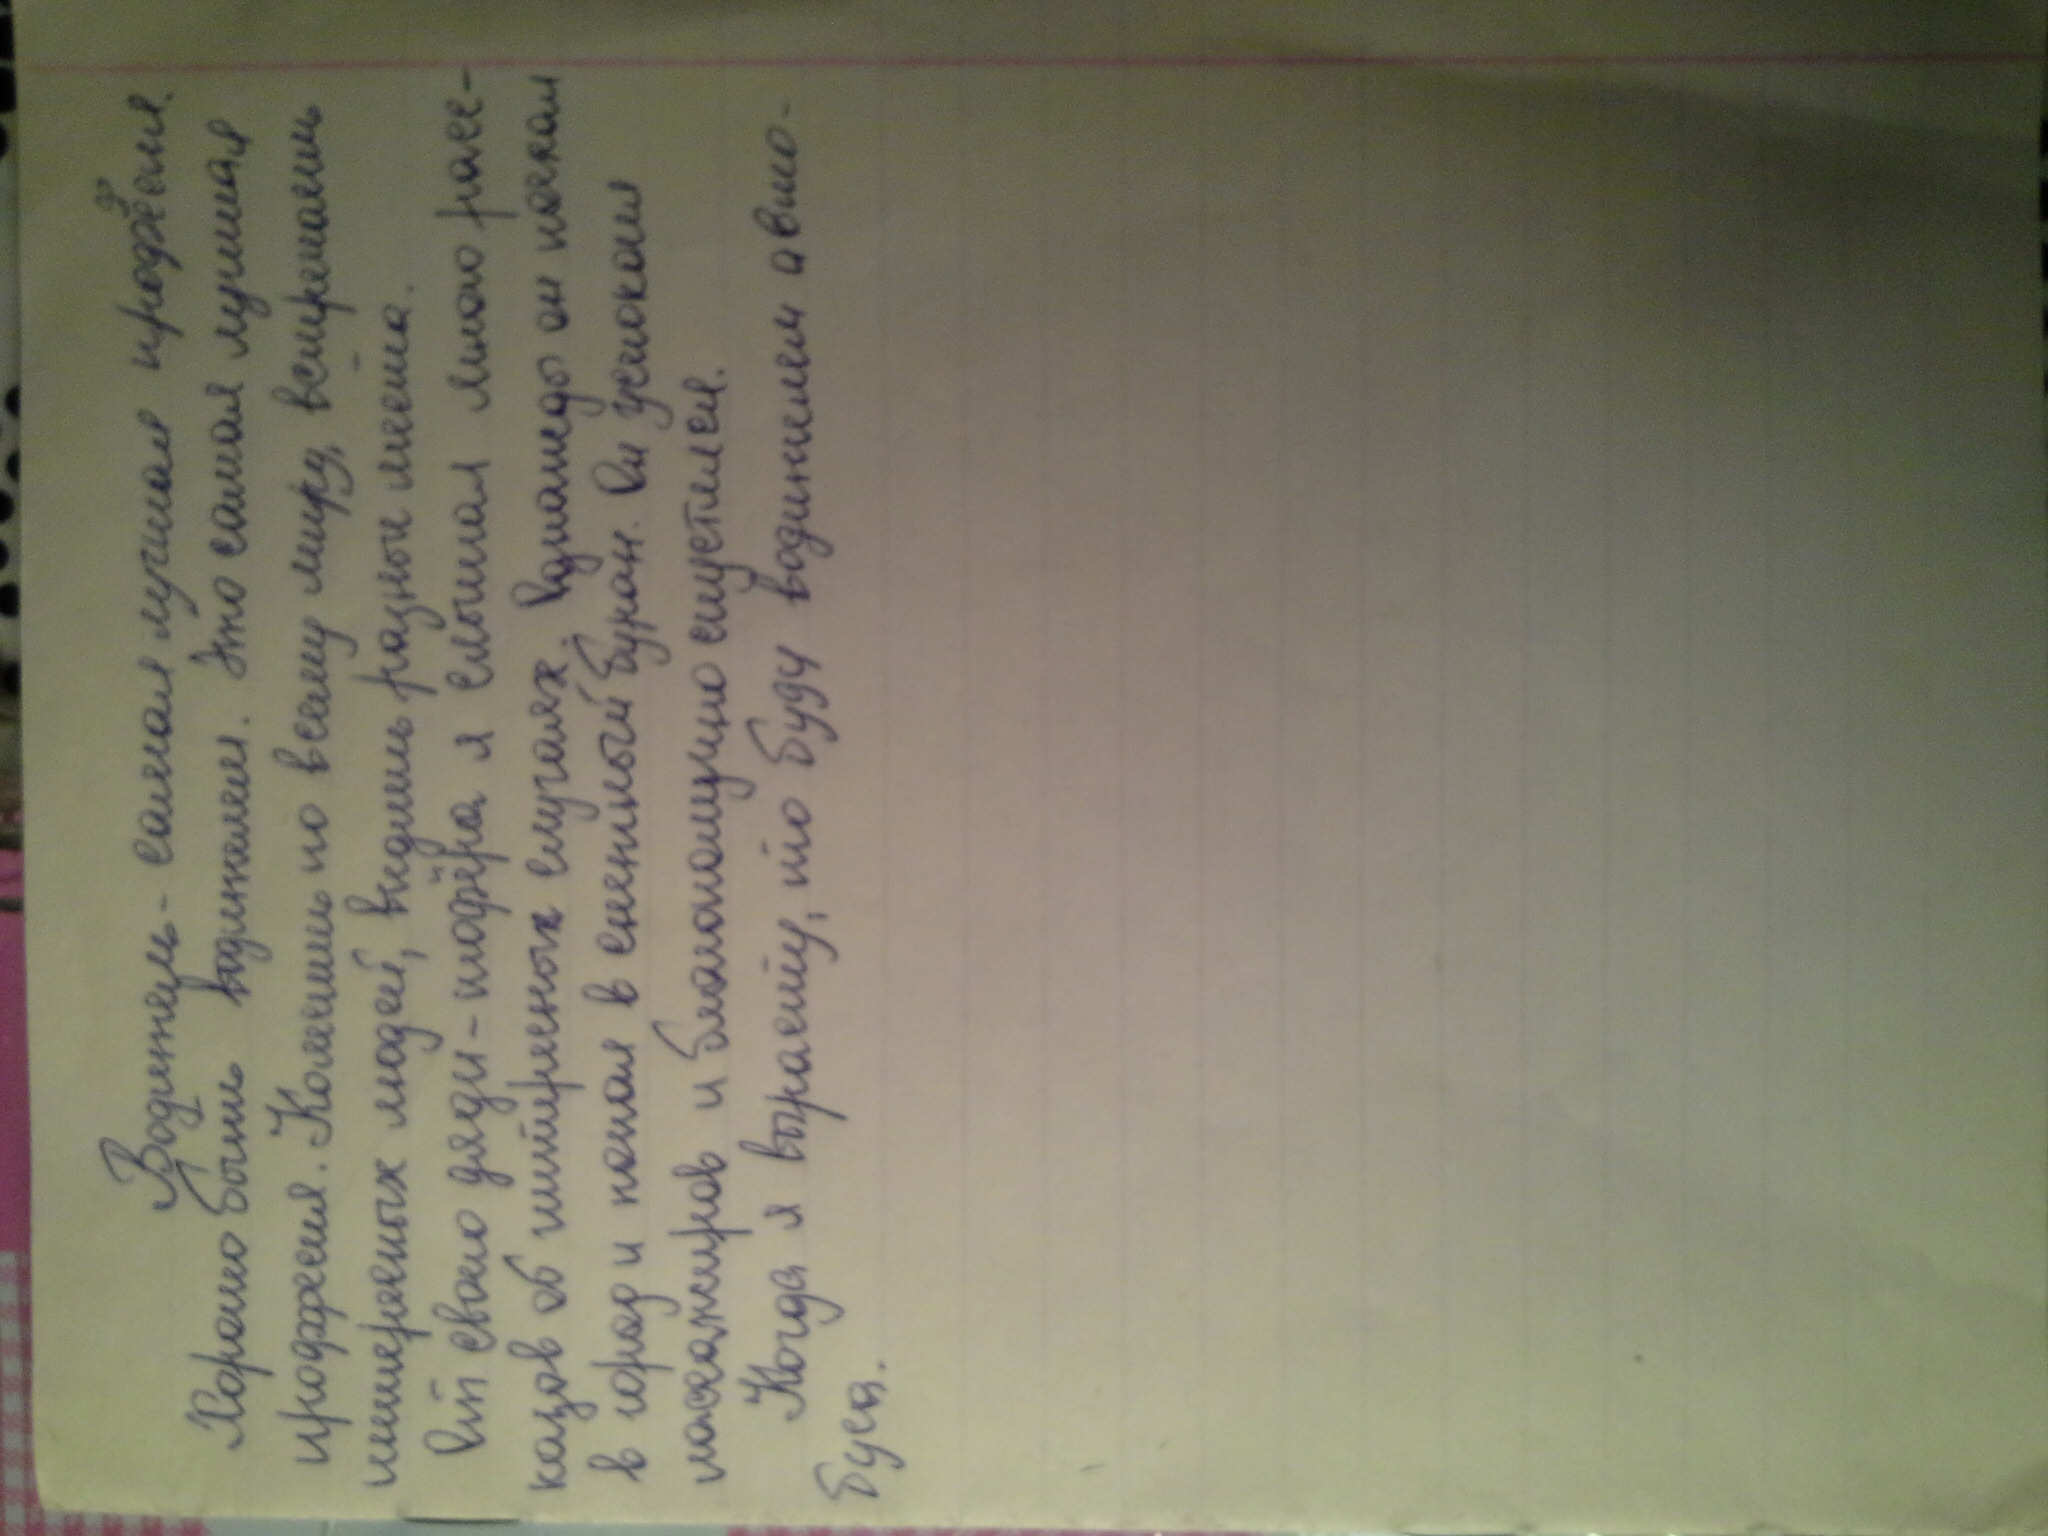 Водитель - самая лучшая профессия.
Хорошо быть водителем. Это самая лучшая
профессия. Колесишь по всему миру, встречаешь
интересных людей, видишь разные места.
От свого дяди - шофёра я слышал много расс-
казов об интересных случаях. Однажды он поехал
в город и попал в снежный буран. Он успокоил
пассажиров и благополучно спустился.
Когда я вырасту, то буду водителем авто-
буса.